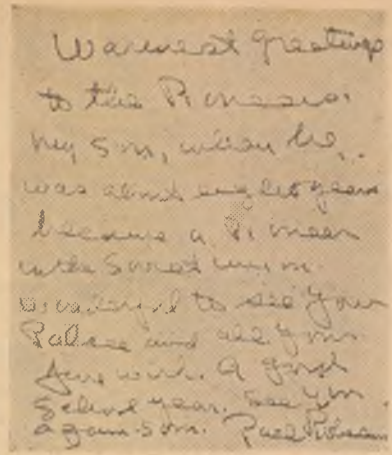 Warmest greetings
to the Pioneers.
My son, when he
was about eight years
became a Pioneer
in the Soviet Union.
wonderful to see your
Palace and all your
fine work. A good
school year. See you
again soon. Paul Robeson